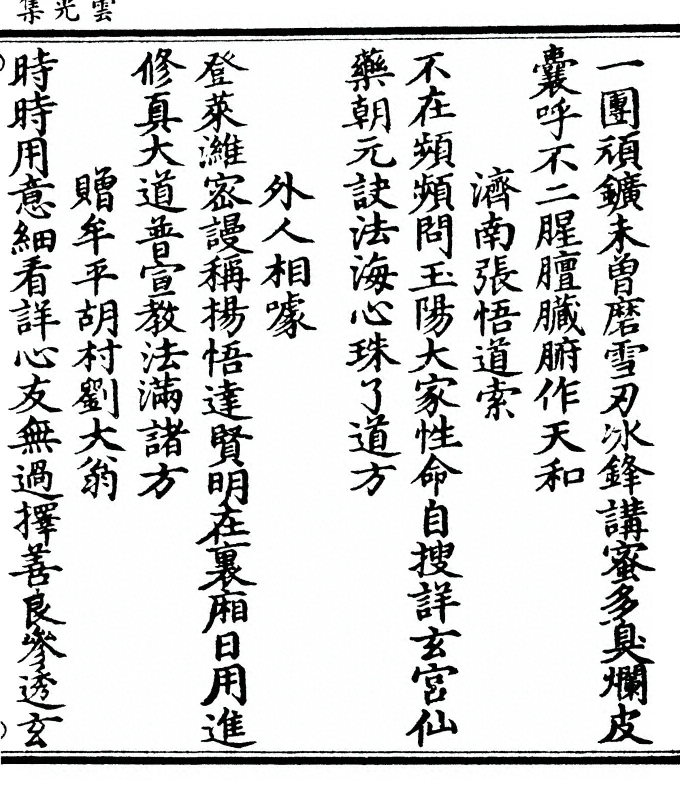 雲光集
一團頑鑛未曾磨雪刃冰鋒講蜜多臭爛皮
囊呼不二腥膻臟腑作天和
濟南張悟道索
不在頻頻問玉陽大家性命自搜詳玄宮仙
藥朝元訣法海心珠了道方
外人相噱
登萊濰密謾稱揚悟達賢明在裏廂日用進
修真大道普宣教法滿諸方
贈牟平胡村劉大翁
時時用意細看詳心友無過擇善良參透玄